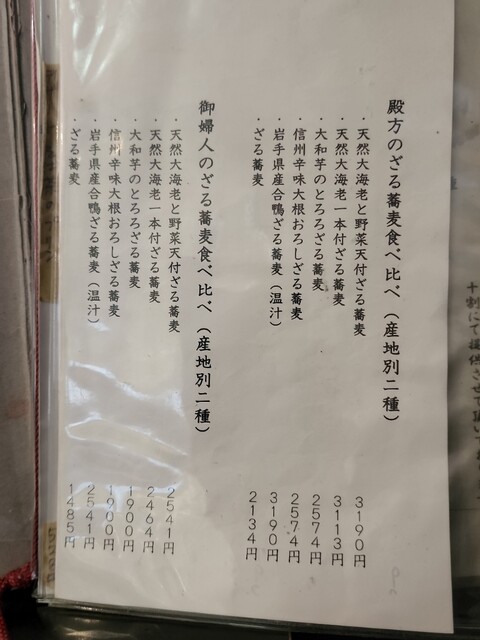 殿方のざる蕎麦食べ比べ（産地別二種）
・天然大海老と野菜天付ざる蕎麦 3190円
・天然大海老一本付ざる蕎麦 3113円
・大和芋のとろろざる蕎麦 2574円
・信州辛味大根おろしざる蕎麦 2574円
・岩手県産合鴨ざる蕎麦（温汁） 3190円
・ざる蕎麦 2134円
御婦人のざる蕎麦食べ比べ（産地別二種）
・天然大海老と野菜天付ざる蕎麦 2541円
・天然大海老一本付ざる蕎麦 2464円
・大和芋のとろろざる蕎麦 1900円
・信州辛味大根おろしざる蕎麦 1900円
・岩手県産合鴨ざる蕎麦（温汁） 2541円
・ざる蕎麦 1485円